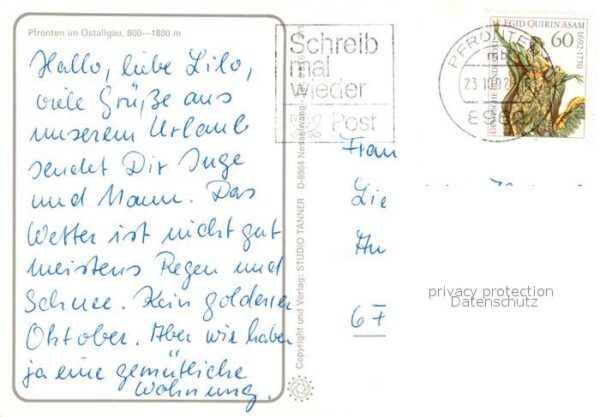 Pfronten im Ostallgäu, 800—1800 m
Hallo, liebe Lilo,
viele Grüße aus
unserem Urlaub
sendet Dir Inge
und Mann. Das
Wetter ist nicht gut
meistens Regen und
Schnee. Kein goldener
Oktober. Aber wir haben
ja eine gemütliche
Wohnung.
Copyright und Verlag: STUDIO TANNER D-8964 Nesselwang
Schreib
mal
wieder
Post
PFRONTEN
mb
23.10.92
896
EGID QUIRIN ASAM
1692-1750
60
DEUTSCHE BUNDESPOST
Frau
Lie
An
67
privacy protection
Datenschutz